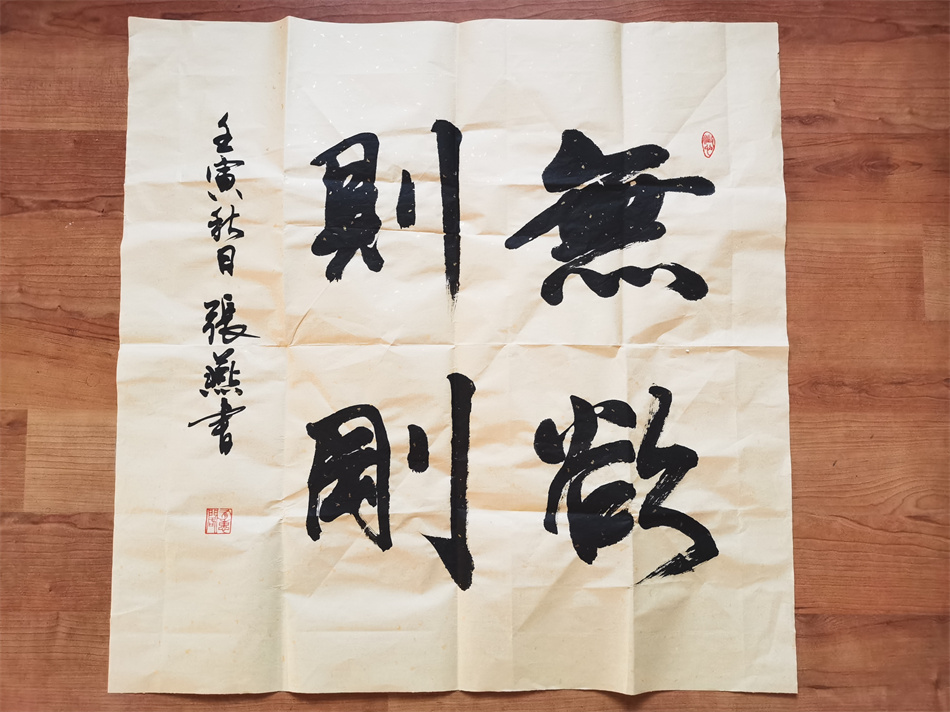 無欲
則剛
壬寅秋日 張燕书